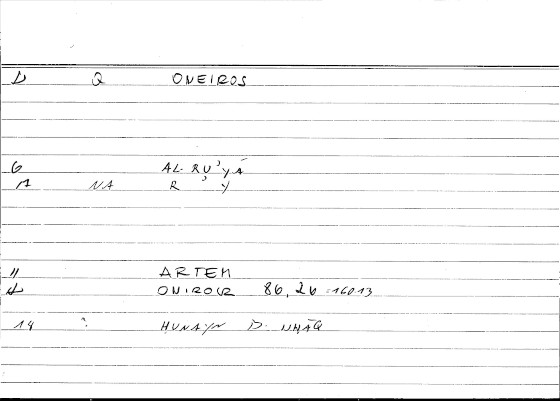 D Q ONEIROS
6 AL-RU'YĀ
A NA R ' Y
11 ARTEM
d ONIROCR 86, 26 = 160 13
14 : HUNAYN B. ISHĀQ